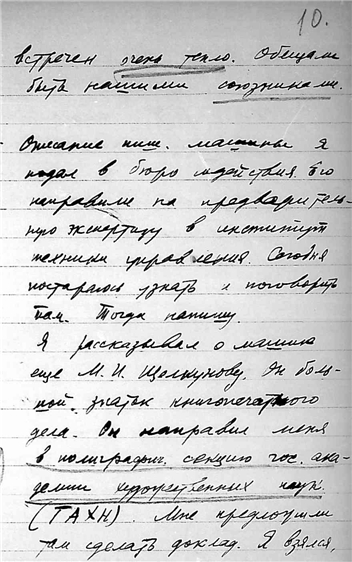 10.
встречен очень тепло. Обещали
быть нашими союзниками.
Описание пиш. машины я
подал в бюро содействия. Его
направили на предваритель-
ную экспертизу в институт
техники управления. Сегодня
постараюсь узнать и поговорить
там. Тогда напишу.
Я рассказывал о машине
еще М. И. Щелкунову. Он боль-
шой знаток книгопечатного
дела. Он направил меня
в полиграфич. секцию гос. ака-
демии художественных наук
(ГАХН). Мне предложили
там сделать доклад. Я взялся,